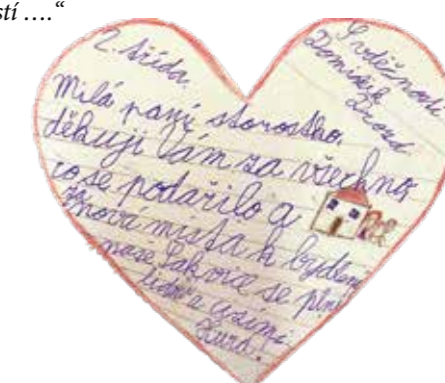 stí ....“
2. třída.
S vděčností
Dominik
Drozd
Milá paní starostko,
děkuji Vám za všechno,
co se podařilo a
za nová místa k bydlení
naše Lakvice se plní
lidmi a
Hurá!